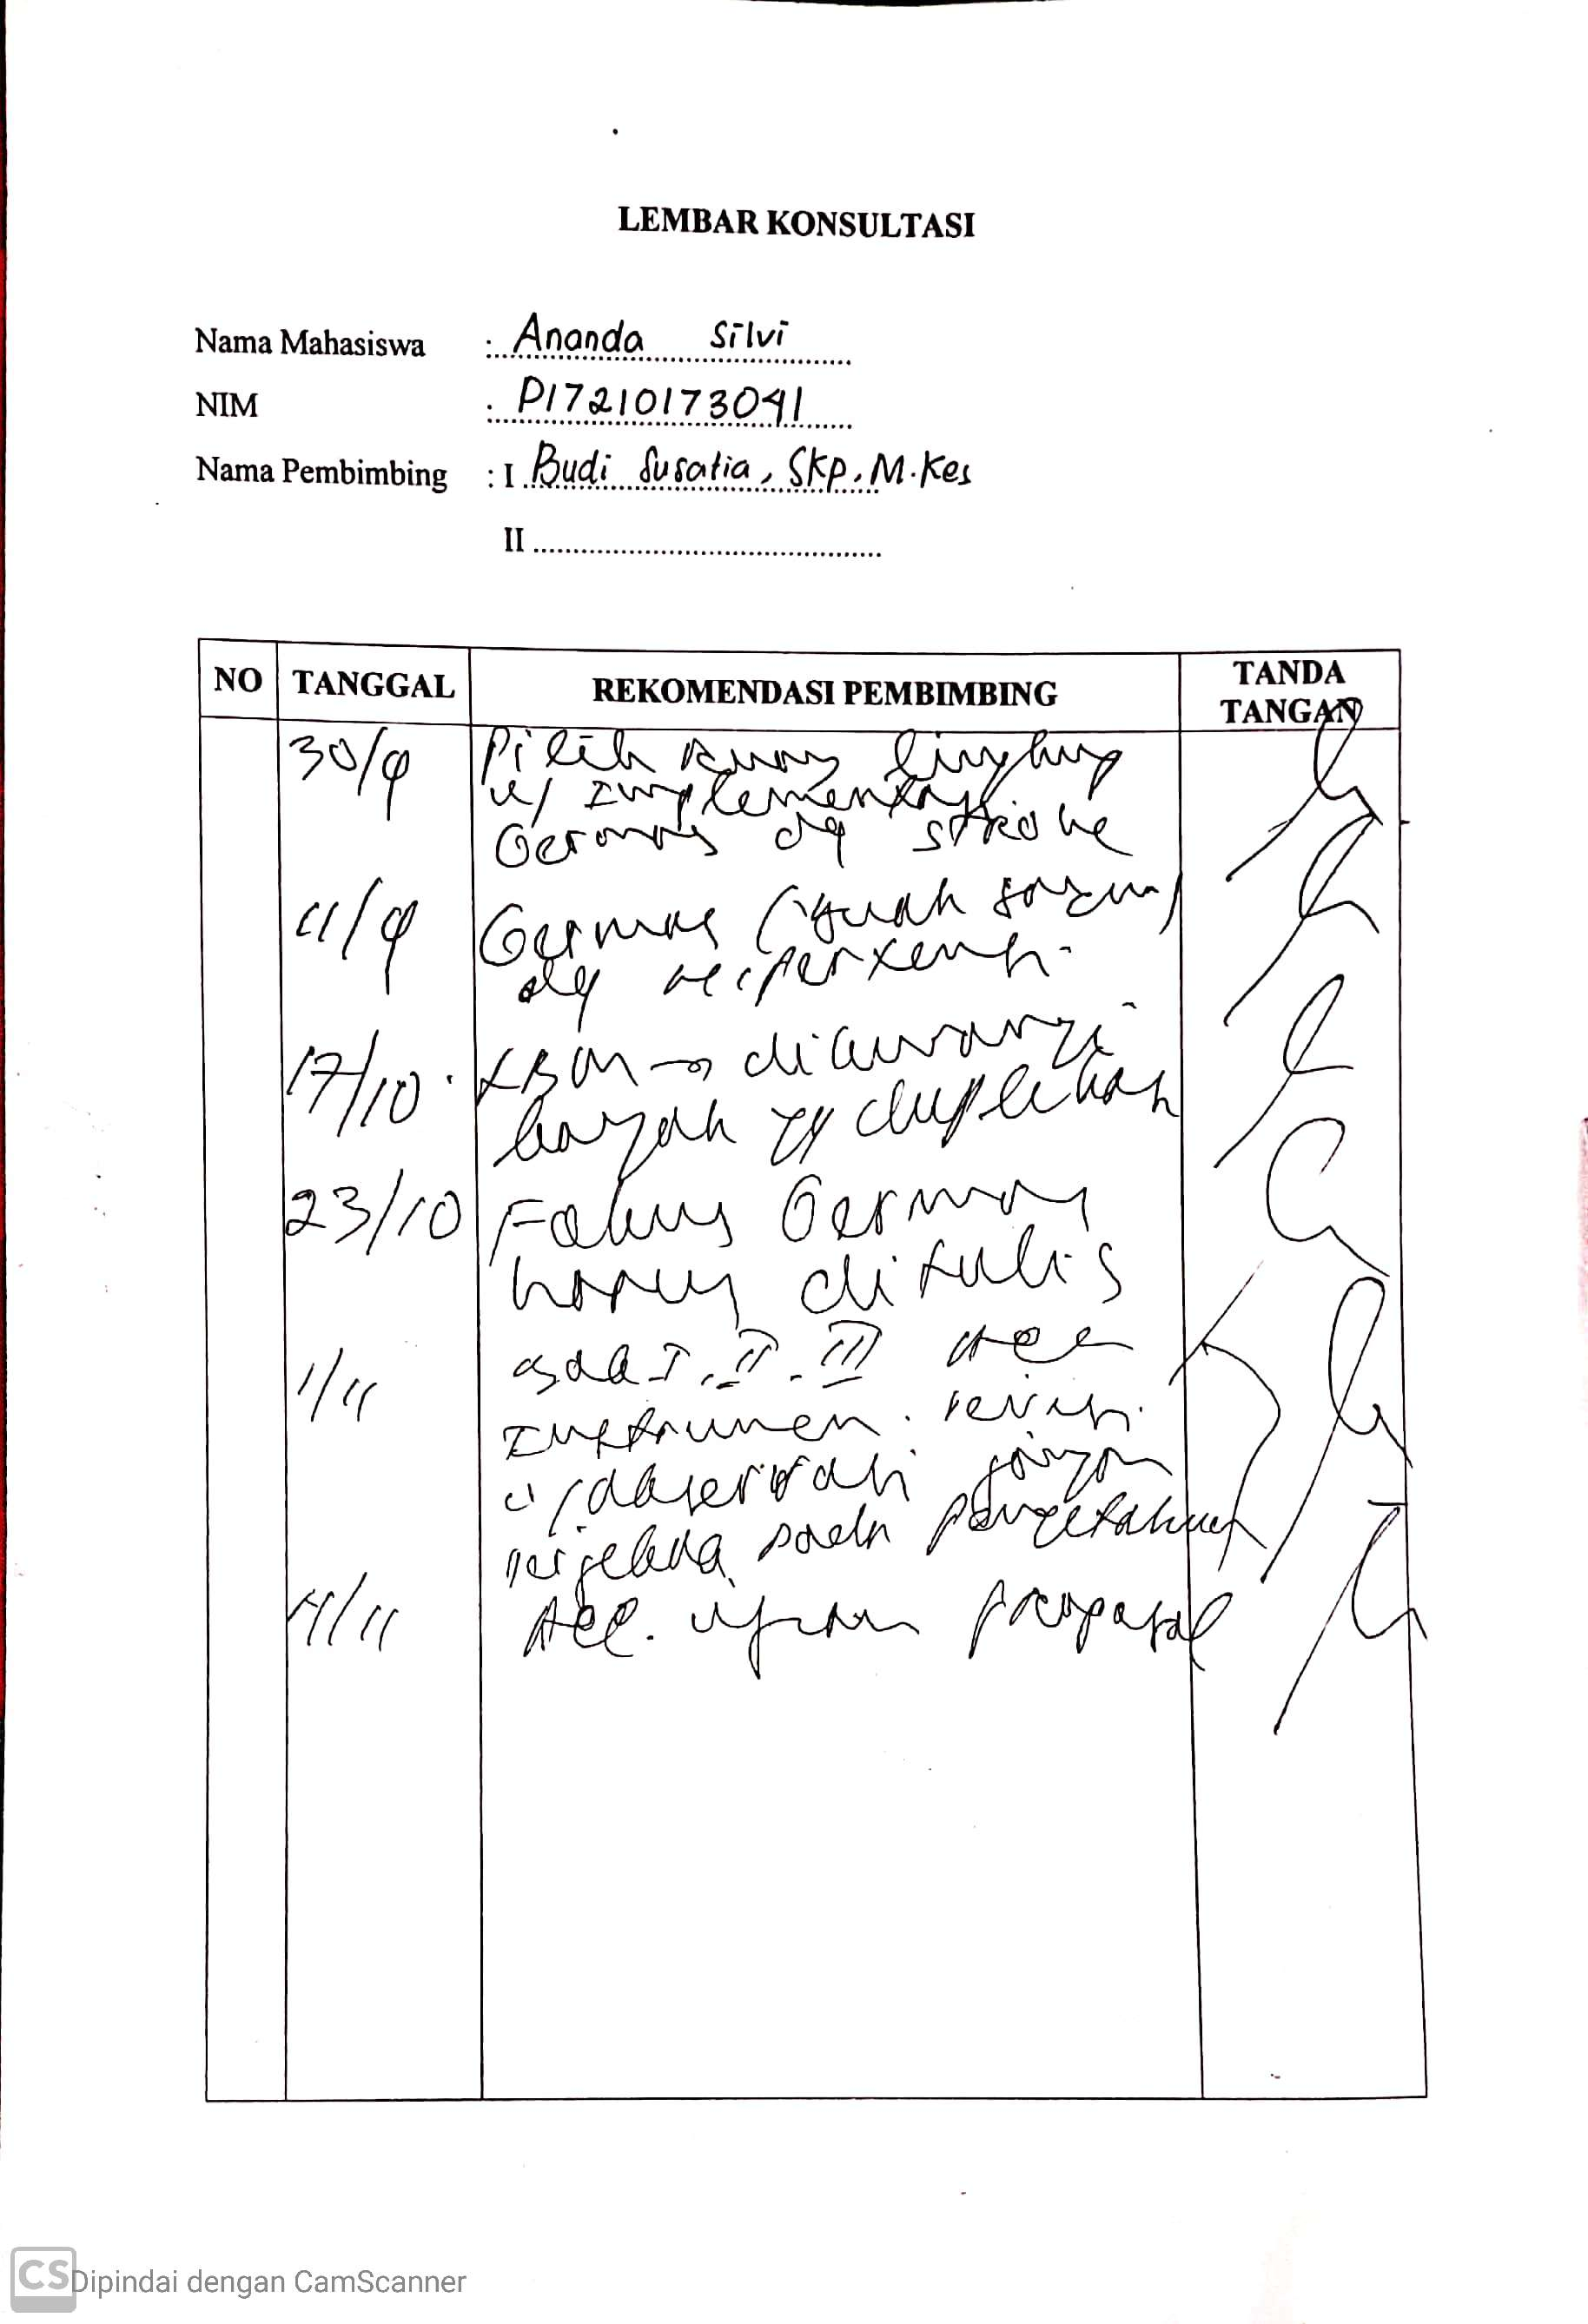 LEMBAR KONSULTASI
Nama Mahasiswa : Ananda Silvi
NIM : P17210173041
Nama Pembimbing : I Budi Susatia, Skp, M.Kes
II
NO TANGGAL REKOMENDASI PEMBIMBING TANDA TANGAN
30/9 Pilih ruang lingkup
u/ Implementasi
Germas dg stroke
11/9 Germas (buah sayur)
dg hipertensi
17/10. LBM → dikurangi
banyak yg duplikasi
23/10 Fokus Germas
harus ditulis
1/11 I, II, III acc
Instrumen. revisi.
u/ observasi jangan
pada pengetahuan
11/11 Acc. ujian proposal
CS Dipindai dengan CamScanner